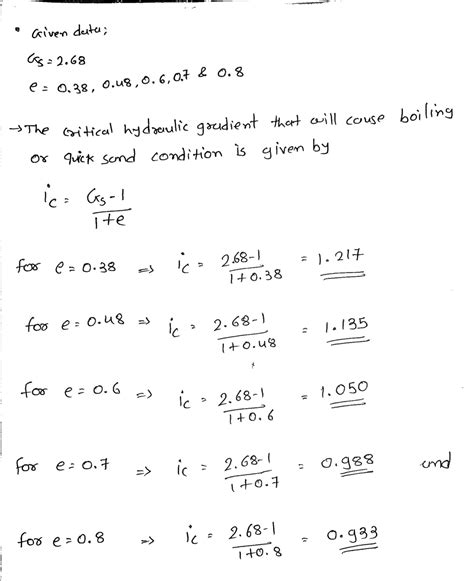 • Given data;
Gs = 2.68
e = 0.38, 0.48, 0.6, 0.7 & 0.8
→ The critical hydraulic gradient that will cause boiling
or quick sand condition is given by
ic = Gs-1 / 1+e
for e = 0.38 => ic = 2.68-1 / 1+0.38 = 1.217
for e = 0.48 => ic = 2.68-1 / 1+0.48 = 1.135
for e = 0.6 => ic = 2.68-1 / 1+0.6 = 1.050
for e = 0.7 => ic = 2.68-1 / 1+0.7 = 0.988 and
for e = 0.8 => ic = 2.68-1 / 1+0.8 = 0.933